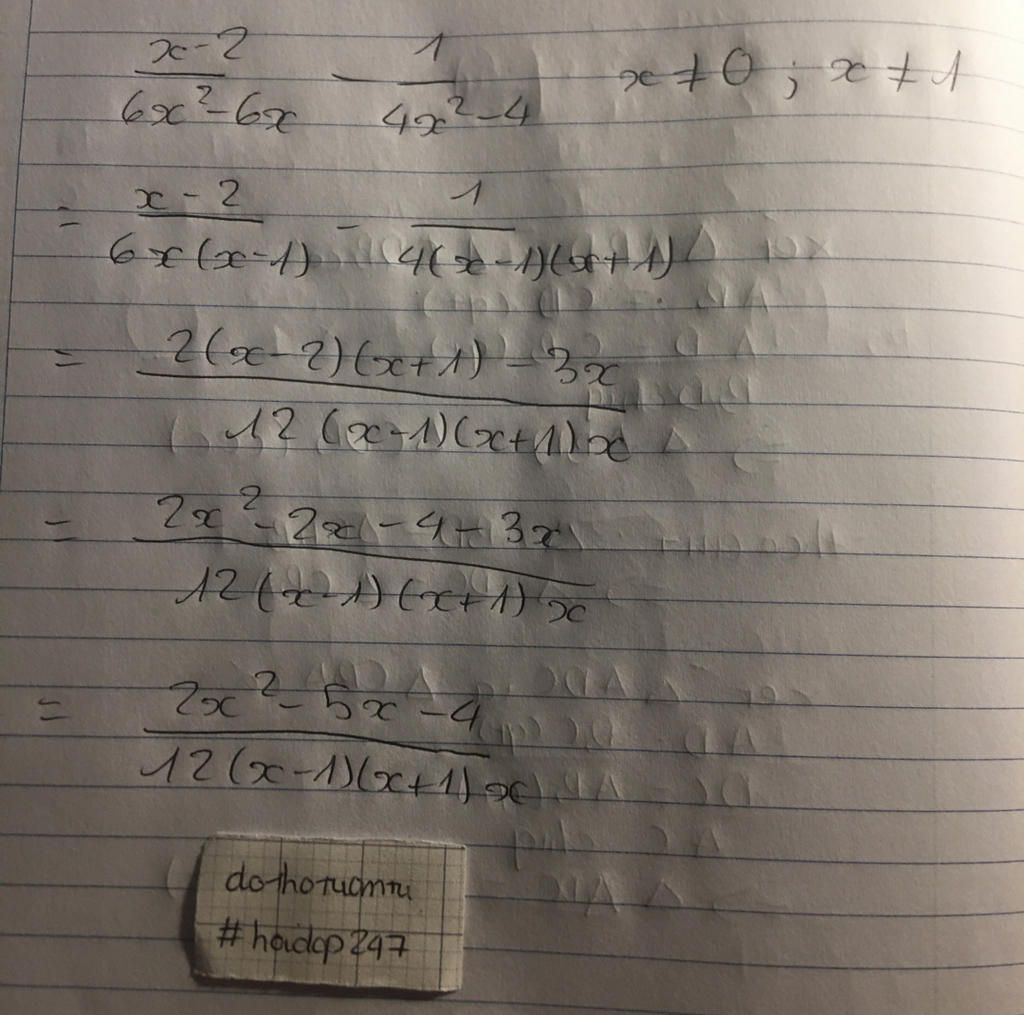 x-2/6x²-6x - 1/4x²-4 x≠0 ; x≠1
= x-2/6x(x-1) - 1/4(x-1)(x+1)
= 2(x-2)(x+1) - 3x/12(x-1)(x+1)x
= 2x²-2x-4-3x/12(x-1)(x+1)x
= 2x²-5x-4/12(x-1)(x+1)x
#hoidap247